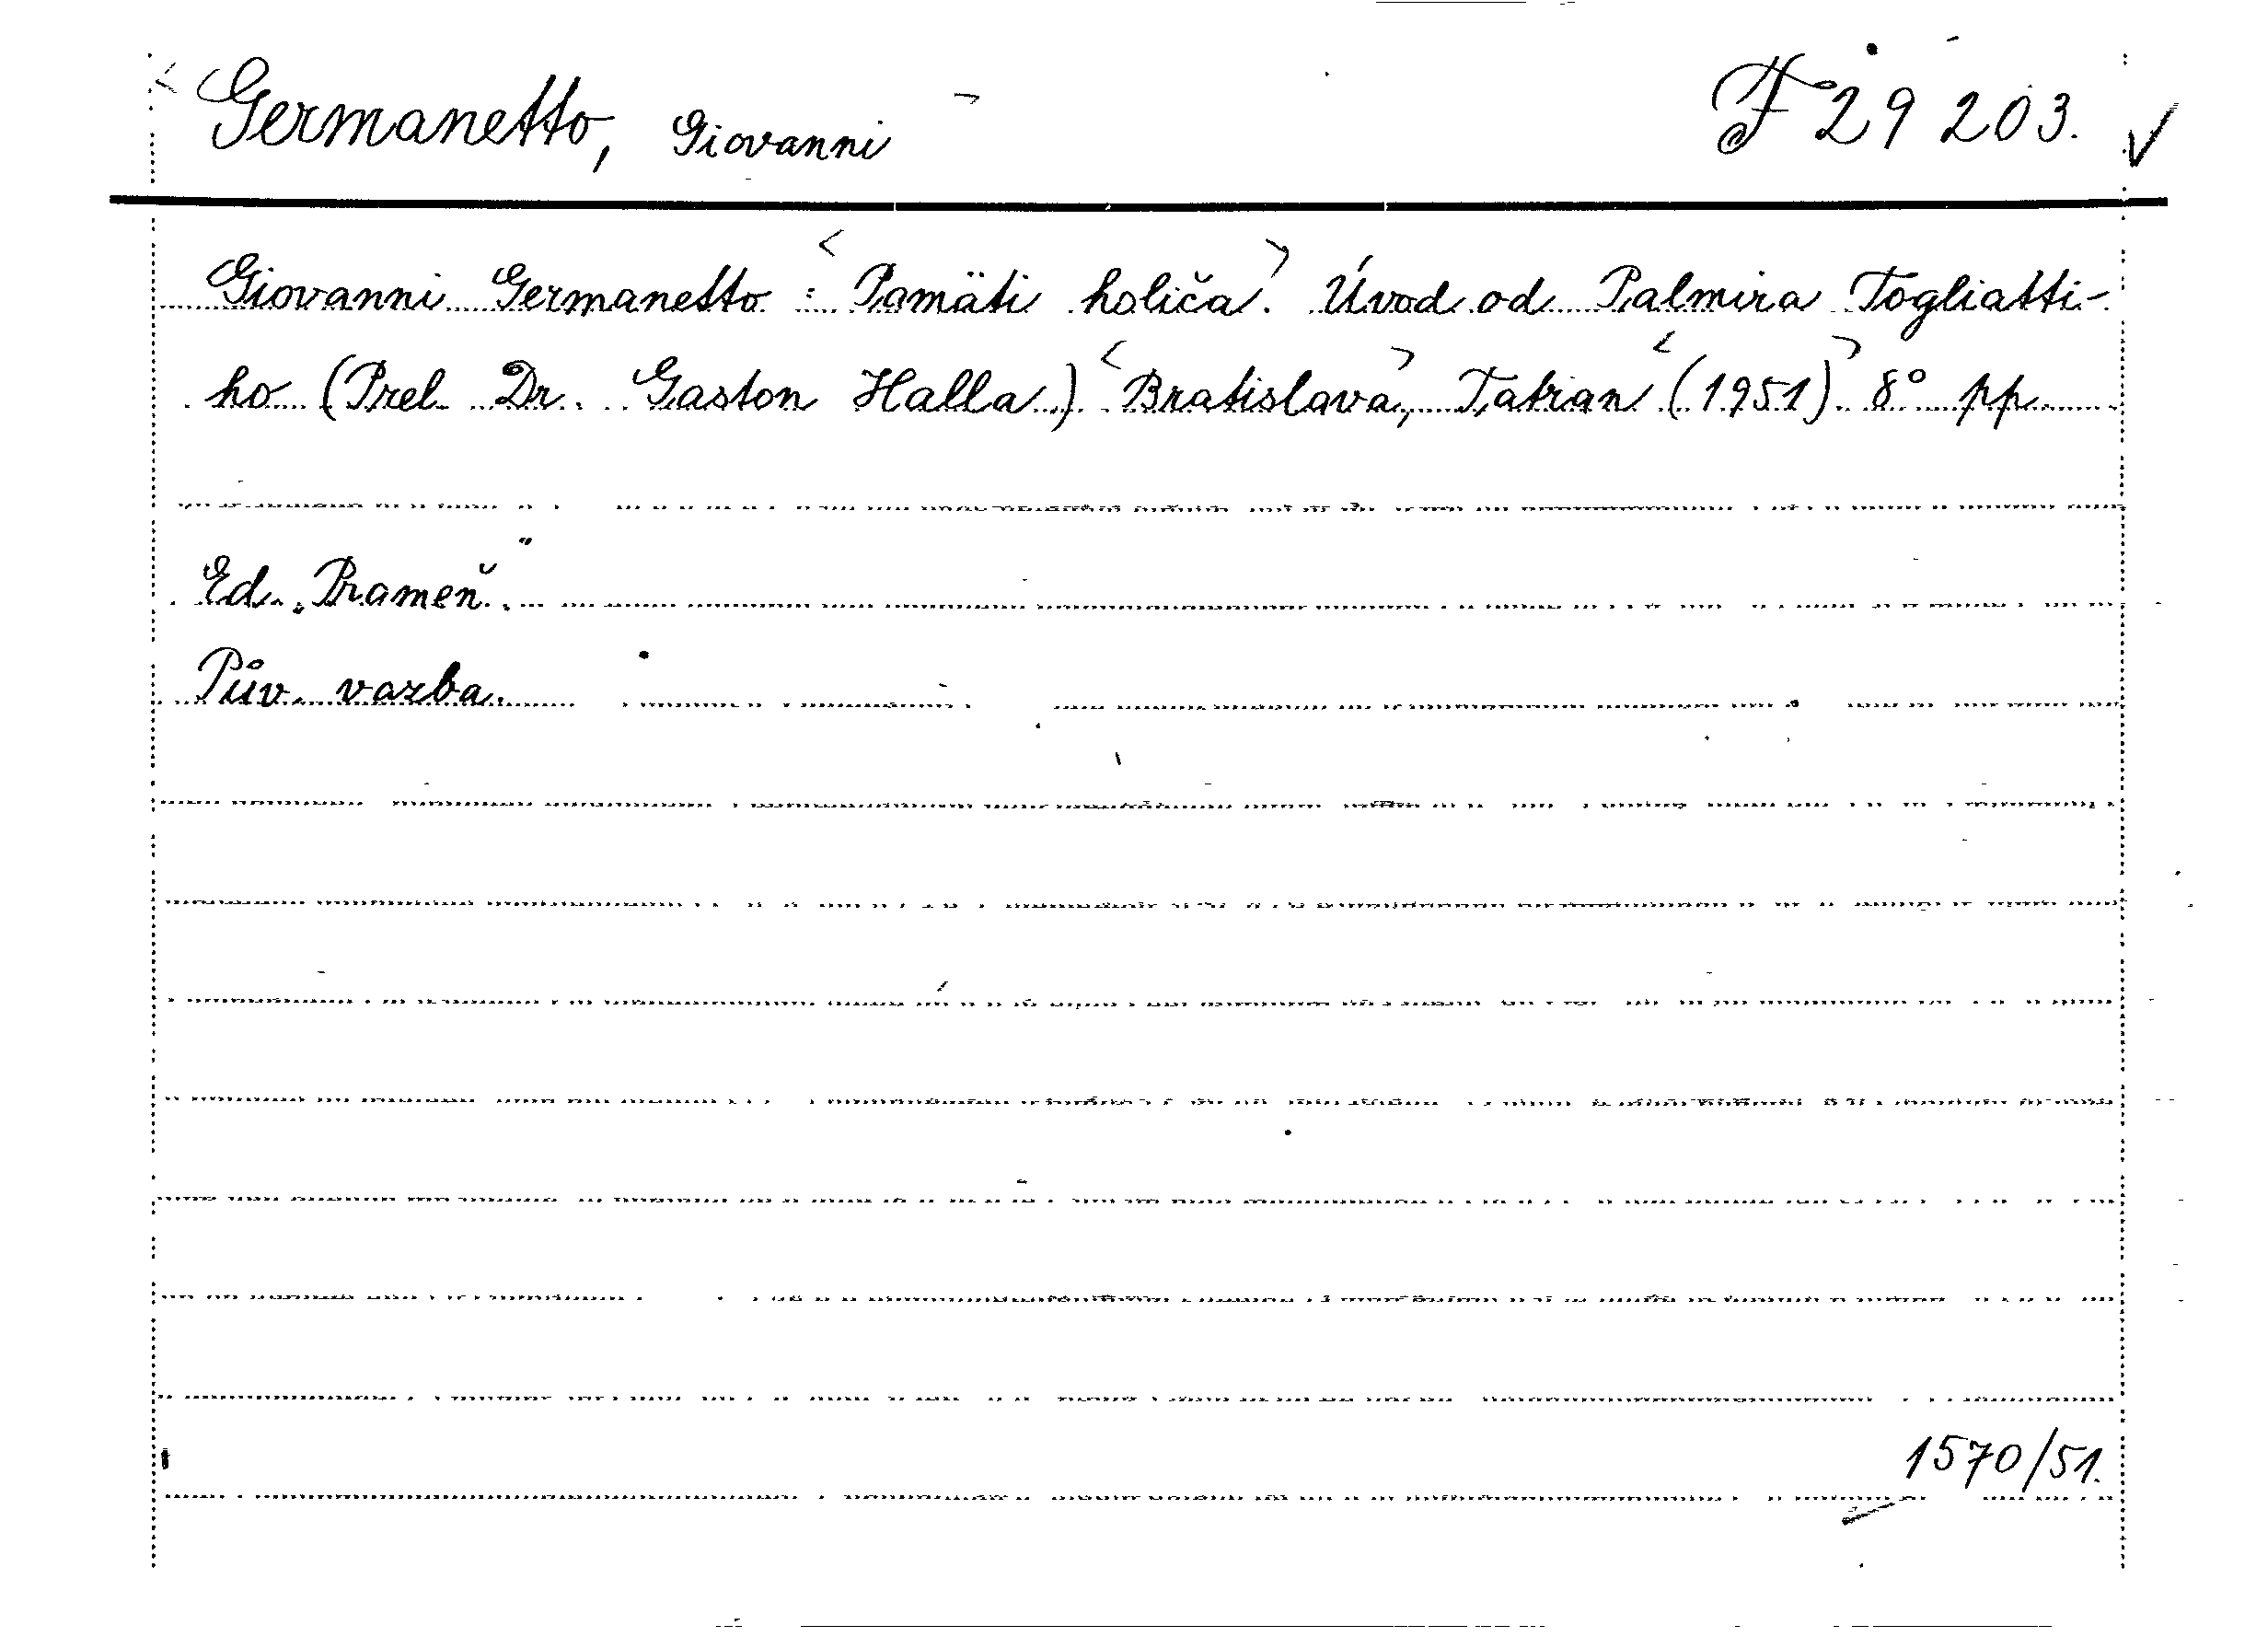 Germanetto, Giovanni F 29 203. ✓
Giovanni Germanetto: <Pamäti holiča>. Úvod od Palmira Togliatti-
ho (Prel. Dr. Gaston Halla.) <Bratislava>, Tatran <(1951)> 8° pp.
Ed. „Prameň“.
Pův. vazba.
1570/51.